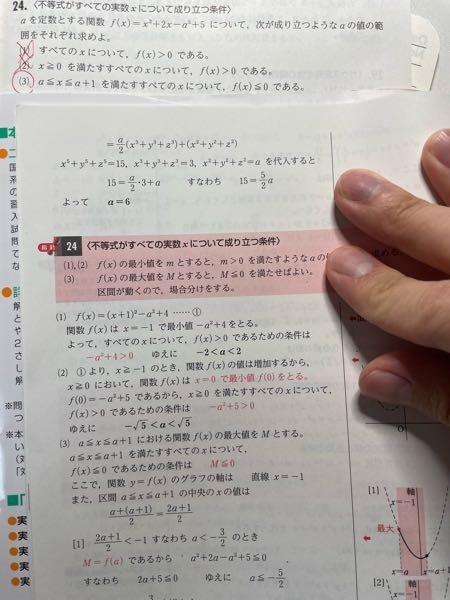 24. 〈不等式がすべての実数 x について成り立つ条件〉
a を定数とする関数 f(x)=x²+2x-a²+5 について，次が成り立つような a の値の範
囲をそれぞれ求めよ。
(1) すべての x について，f(x)>0 である。
(2) x≧0 を満たすすべての x について，f(x)>0 である。
(3) a≦x≦a+1 を満たすすべての x について，f(x)≦0 である。
=a/2(x³+y³+z³)+(x²+y²+z²)
x⁵+y⁵+z⁵=15, x³+y³+z³=3, x²+y²+z²=a を代入すると
15=a/2・3+a すなわち 15=5/2a
よって a=6
24 〈不等式がすべての実数 x について成り立つ条件〉
(1), (2) f(x) の最小値を m とすると，m>0 を満たすような a の
(3) f(x) の最大値を M とすると，M≦0 を満たせばよい。
区間が動くので，場合分けをする。
(1) f(x)=(x+1)²-a²+4 ……①
関数 f(x) は x=-1 で最小値 -a²+4 をとる。
よって，すべての x について，f(x)>0 であるための条件は
-a²+4>0 ゆえに -2<a<2
(2) ①より，x≧-1 のとき，関数 f(x) の値は増加するから，
x≧0 において，関数 f(x) は x=0 で最小値 f(0) をとる。
f(0)=-a²+5 であるから，x≧0 を満たすすべての x について，
f(x)>0 であるための条件は -a²+5>0
ゆえに -√5<a<√5
(3) a≦x≦a+1 における関数 f(x) の最大値を M とする。
a≦x≦a+1 を満たすすべての x について，
f(x)≦0 であるための条件は M≦0
ここで，関数 y=f(x) のグラフの軸は 直線 x=-1
また，区間 a≦x≦a+1 の中央の x の値は
a+(a+1)/2=2a+1/2
[1] 2a+1/2<-1 すなわち a<-3/2 のとき
M=f(a) であるから a²+2a-a²+5≦0
すなわち 2a+5≦0 ゆえに a≦-5/2
O
[1] 軸
x=-1
最大
x=a x=a+1
[2] 軸
x=-1